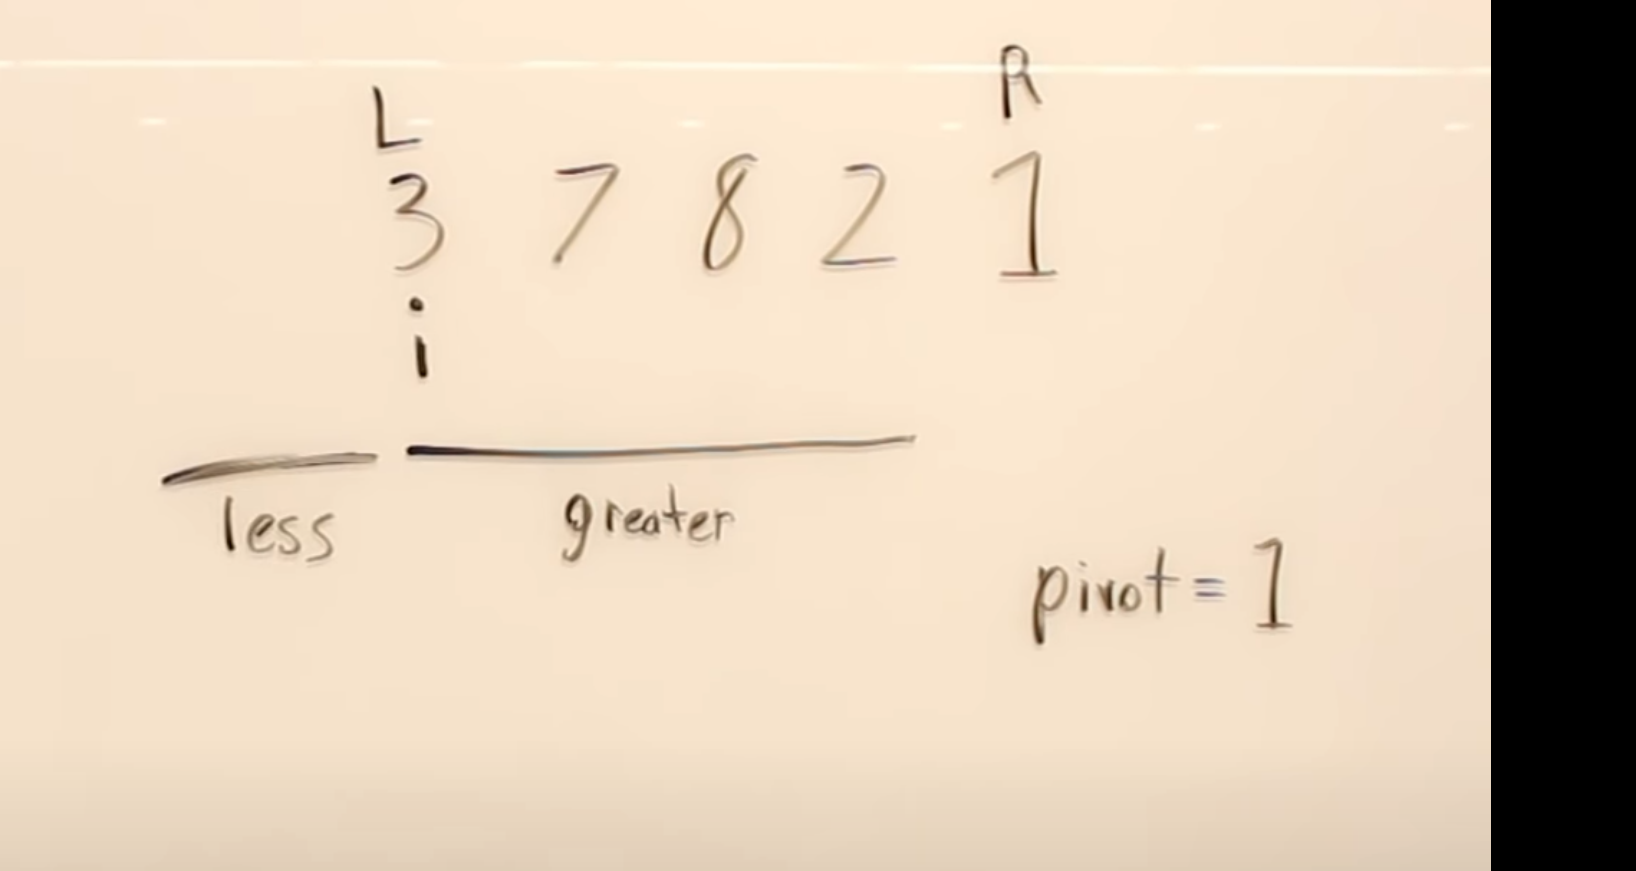 L R
3 7 8 2 1
i
less greater
pivot = 1